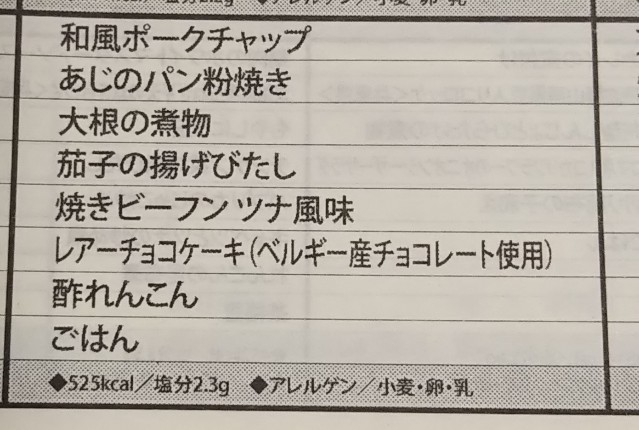 和風ポークチャップ
あじのパン粉焼き
大根の煮物
茄子の揚げびたし
焼きビーフン ツナ風味
レアーチョコケーキ(ベルギー産チョコレート使用)
酢れんこん
ごはん
◆525kcal/塩分2.3g ◆アレルゲン/小麦・卵・乳